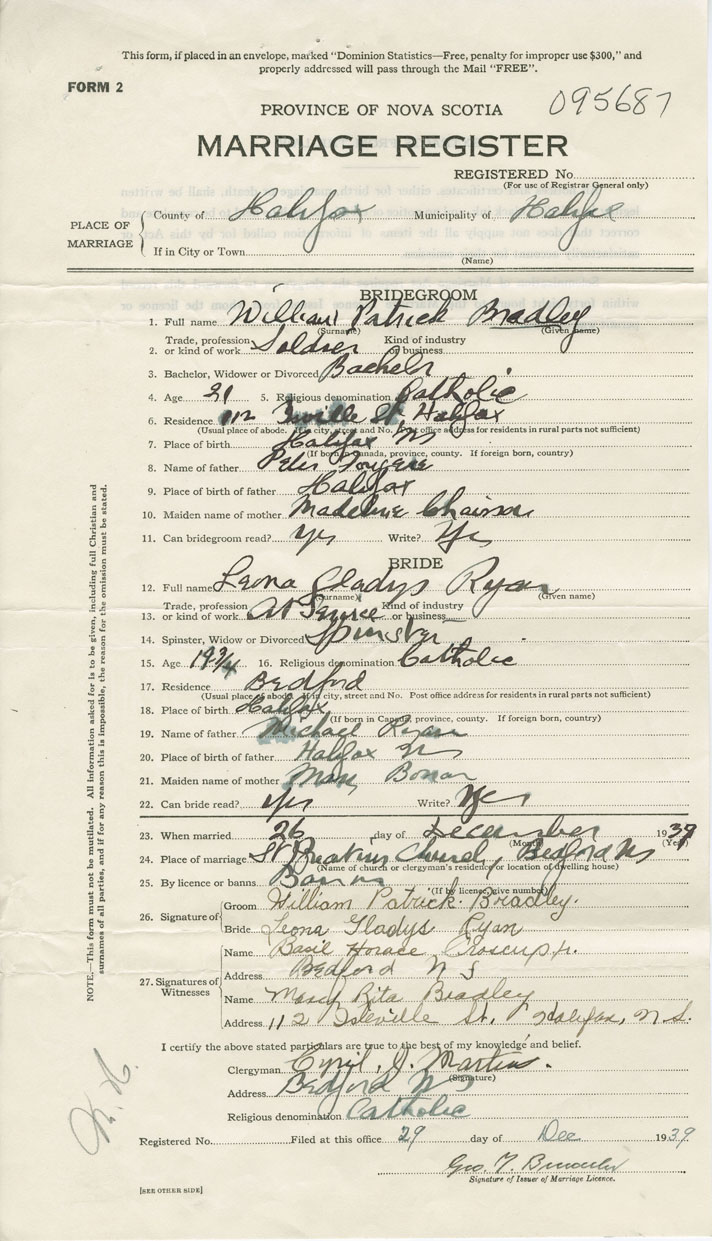 This form, if placed in an envelope, marked "Dominion Statistics—Free, penalty for improper use $300," and
properly addressed will pass through the Mail "FREE".
FORM 2
095687
PROVINCE OF NOVA SCOTIA
MARRIAGE REGISTER
REGISTERED No.
(For use of Registrar General only)
PLACE OF MARRIAGE
County of Halifax Municipality of Halifax
If in City or Town
(Name)
BRIDEGROOM
1. Full name William Patrick Bradley
(Surname) (Given name)
2. Trade, profession or kind of work Soldier Kind of industry or business
3. Bachelor, Widower or Divorced Bachelor
4. Age 21 5. Religious denomination Catholic
6. Residence 112 St Halifax
(Usual place of abode. If in city, street and No. Post office address for residents in rural parts not sufficient)
7. Place of birth Halifax NS
(If born in Canada, province, county. If foreign born, country)
8. Name of father Peter
9. Place of birth of father Halifax
10. Maiden name of mother Madeline Chaisson
11. Can bridegroom read? Yes Write? Yes
BRIDE
12. Full name Leona Gladys Ryan
(Surname) (Given name)
13. Trade, profession or kind of work At Service Kind of industry or business
14. Spinster, Widow or Divorced Spinster
15. Age 19 3/4 16. Religious denomination Catholic
17. Residence Bedford
(Usual place of abode. If in city, street and No. Post office address for residents in rural parts not sufficient)
18. Place of birth Halifax
(If born in Canada, province, county. If foreign born, country)
19. Name of father Michael Ryan
20. Place of birth of father Halifax NS
21. Maiden name of mother Mary
22. Can bride read? Yes Write? Yes
23. When married 26 day of December 1939
(Month) (Year)
24. Place of marriage St Church, Bedford NS
(Name of church or clergyman's residence or location of dwelling house)
25. By licence or banns Banns
(If by license, give number)
26. Signature of
Groom William Patrick Bradley.
Bride Leona Gladys Ryan
27. Signatures of Witnesses
Name Basil Horace Croscup Jr.
Address Bedford N S
Name Mary Rita Bradley
Address 112 Isleville St. Halifax, N.S.
I certify the above stated particulars are true to the best of my knowledge and belief.
Clergyman Cyril J. Martin.
(Signature)
Address Bedford NS
Religious denomination Catholic
Registered No. Filed at this office 29 day of Dec 1939
Geo. T.
Signature of Issuer of Marriage Licence.
[SEE OTHER SIDE]
NOTE.—This form must not be mutilated. All information asked for is to be given, including full Christian and
surnames of all parties, and if for any reason this is impossible, the reason for the omission must be stated.